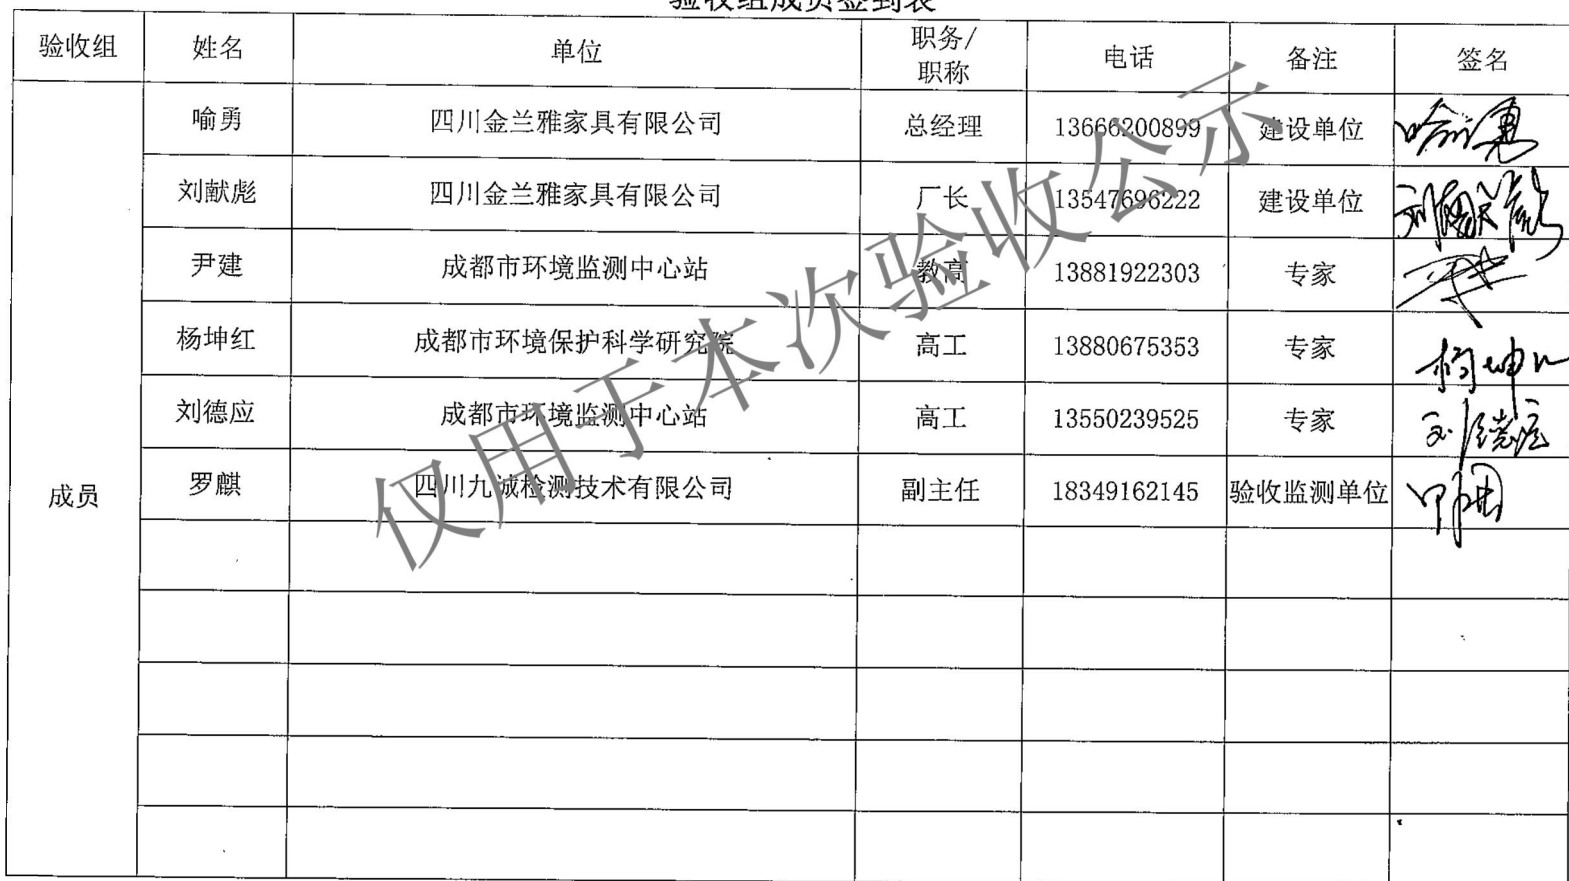 验收组成员签到表
验收组 姓名 单位 职务/职称 电话 备注 签名
成员
喻勇 四川金兰雅家具有限公司 总经理 13666200899 建设单位 喻勇
刘献彪 四川金兰雅家具有限公司 厂长 13547696222 建设单位 刘献彪
尹建 成都市环境监测中心站 教高 13881922303 专家
杨坤红 成都市环境保护科学研究院 高工 13880675353 专家 杨坤红
刘德应 成都市环境监测中心站 高工 13550239525 专家 刘德应
罗麒 四川九诚检测技术有限公司 副主任 18349162145 验收监测单位
仅用于本次验收公示